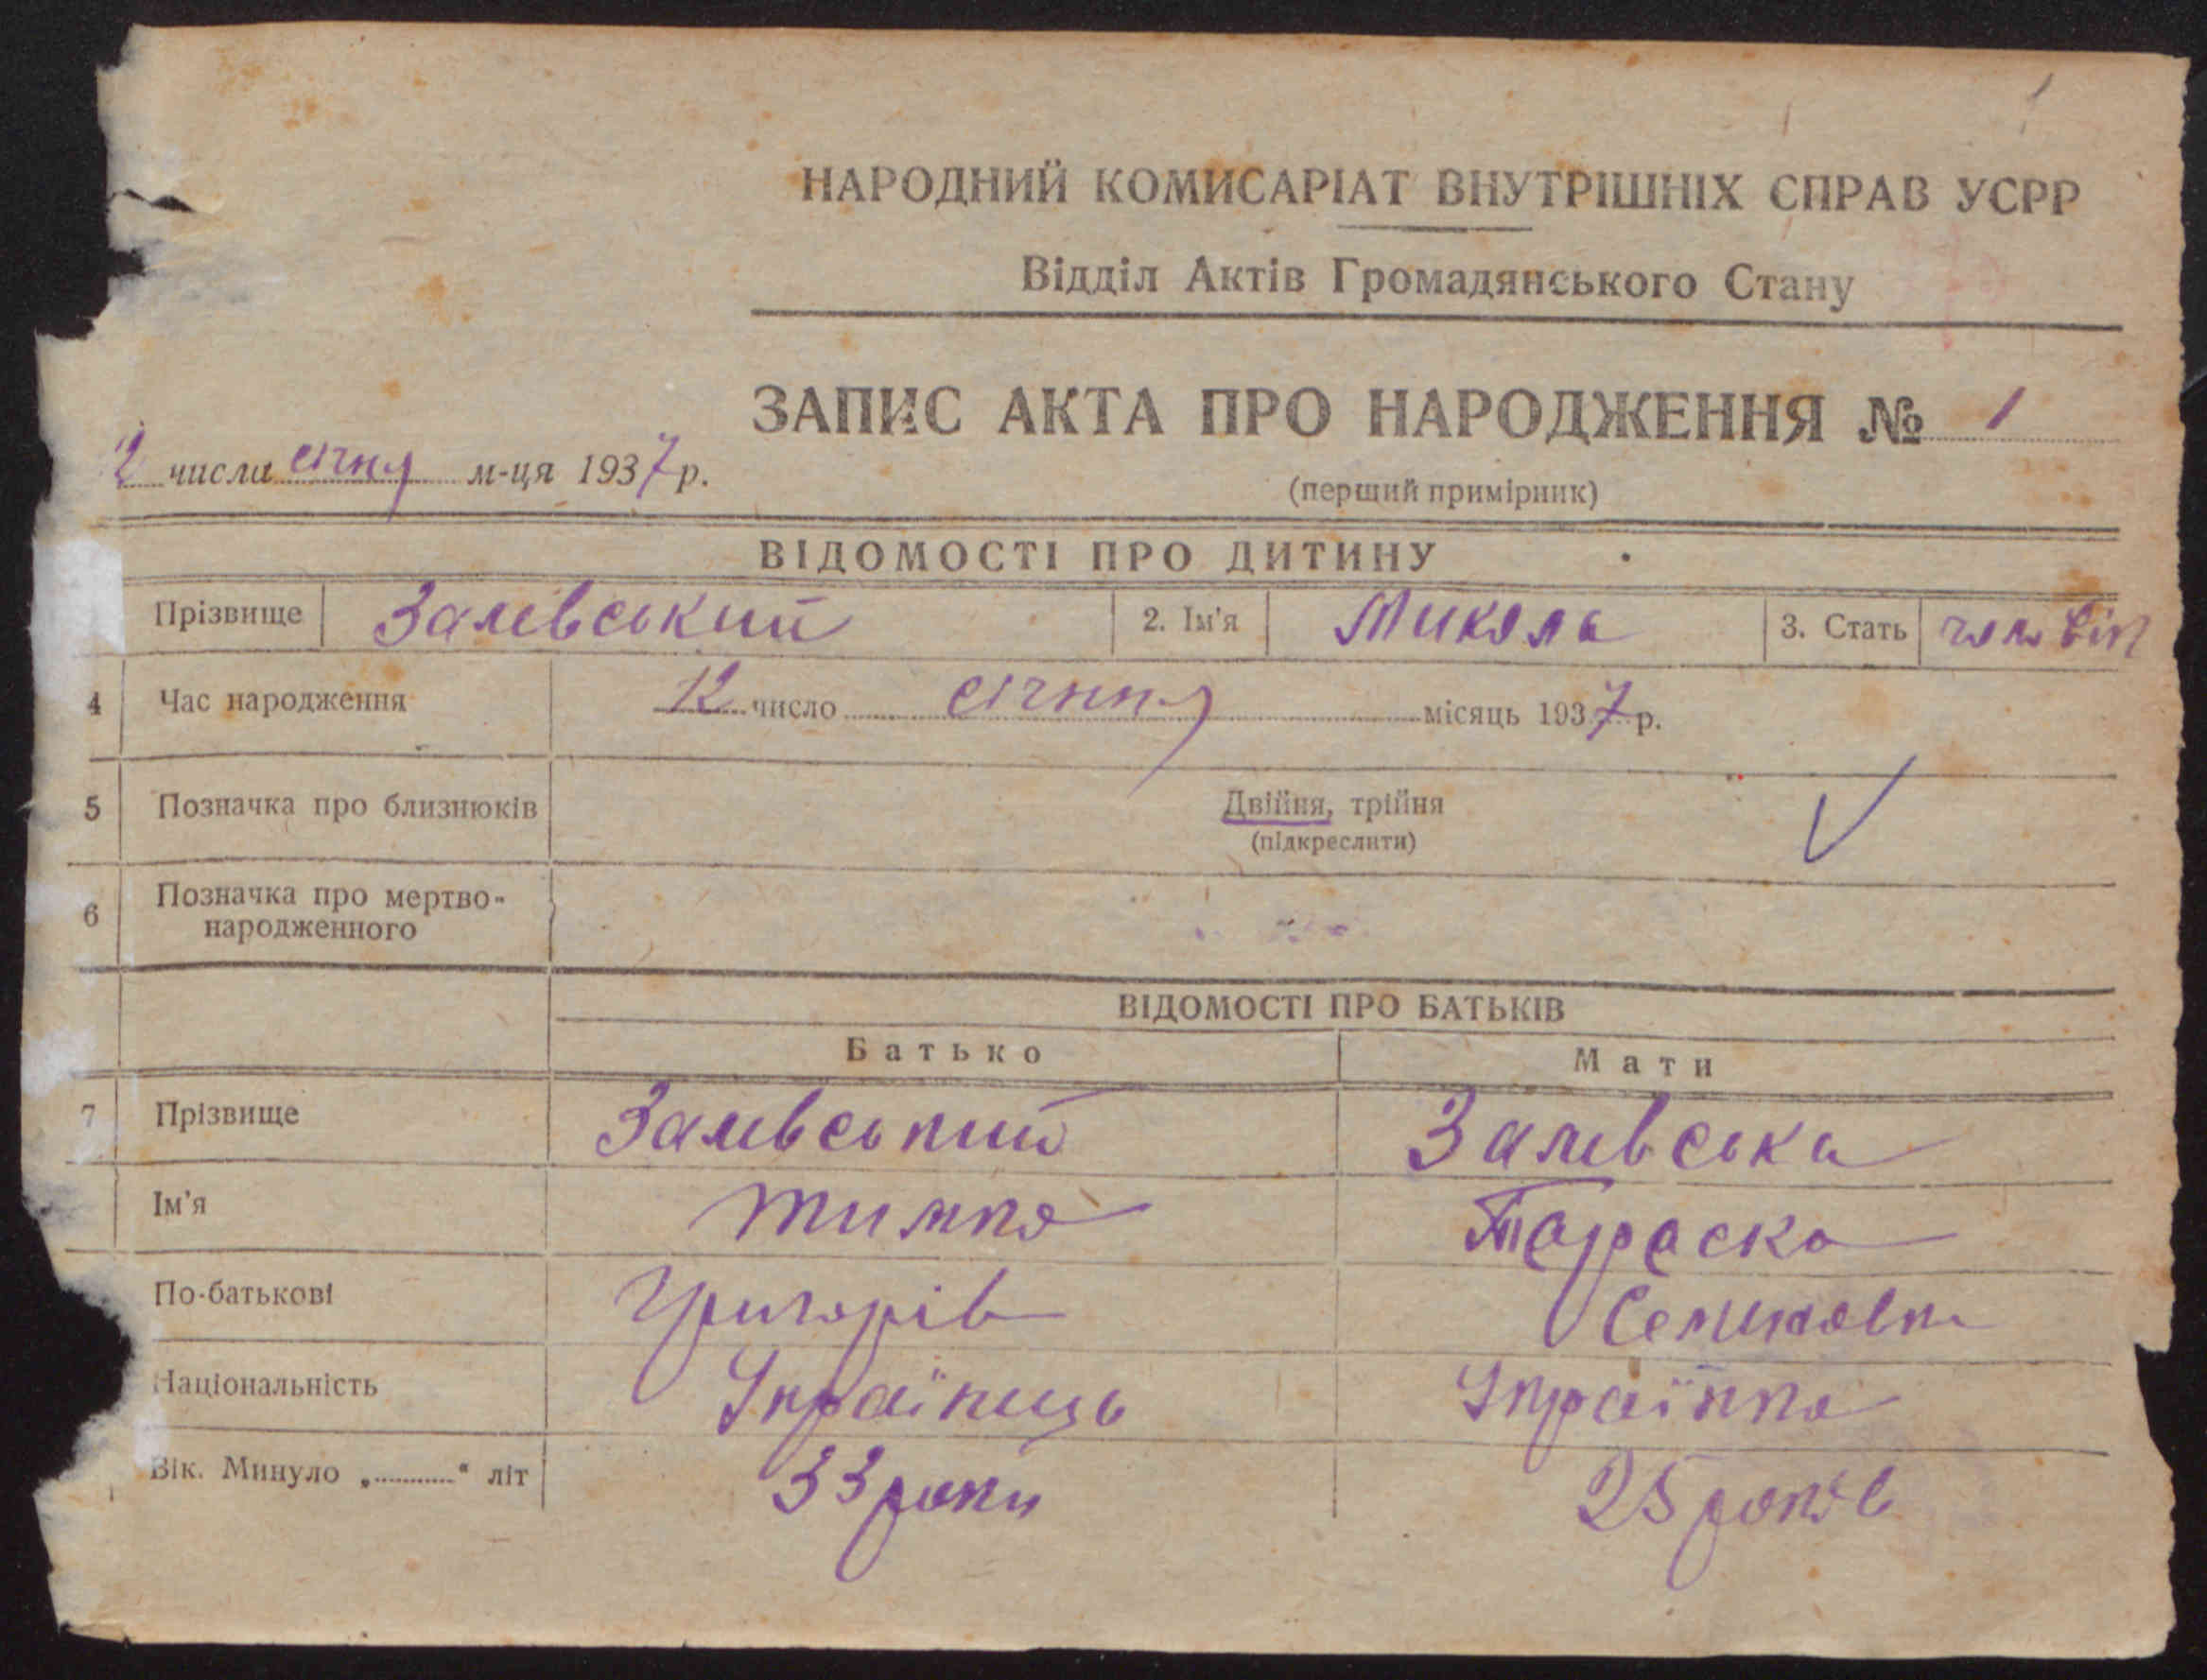 НАРОДНИЙ КОМИСАРІАТ ВНУТРІШНІХ СПРАВ УСРР
Відділ Актів Громадянського Стану
ЗАПИС АКТА ПРО НАРОДЖЕННЯ № 1
2 числа січня м-ця 1937 р.
(перший примірник)
ВІДОМОСТІ ПРО ДИТИНУ
Прізвище Залевський 2. Ім'я Микола 3. Стать
4 Час народження 12 число січння місяць 1937 р.
5 Позначка про близнюків Двійня, трійня
(підкреслити)
6 Позначка про мертво-
народженного
ВІДОМОСТІ ПРО БАТЬКІВ
Батько Мати
7 Прізвище Залевський Залевська
Ім'я Тимко Параска
По-батькові Григорів
Національність Українець Українка
Вік. Минуло „ “ літ 33 роки 25 років